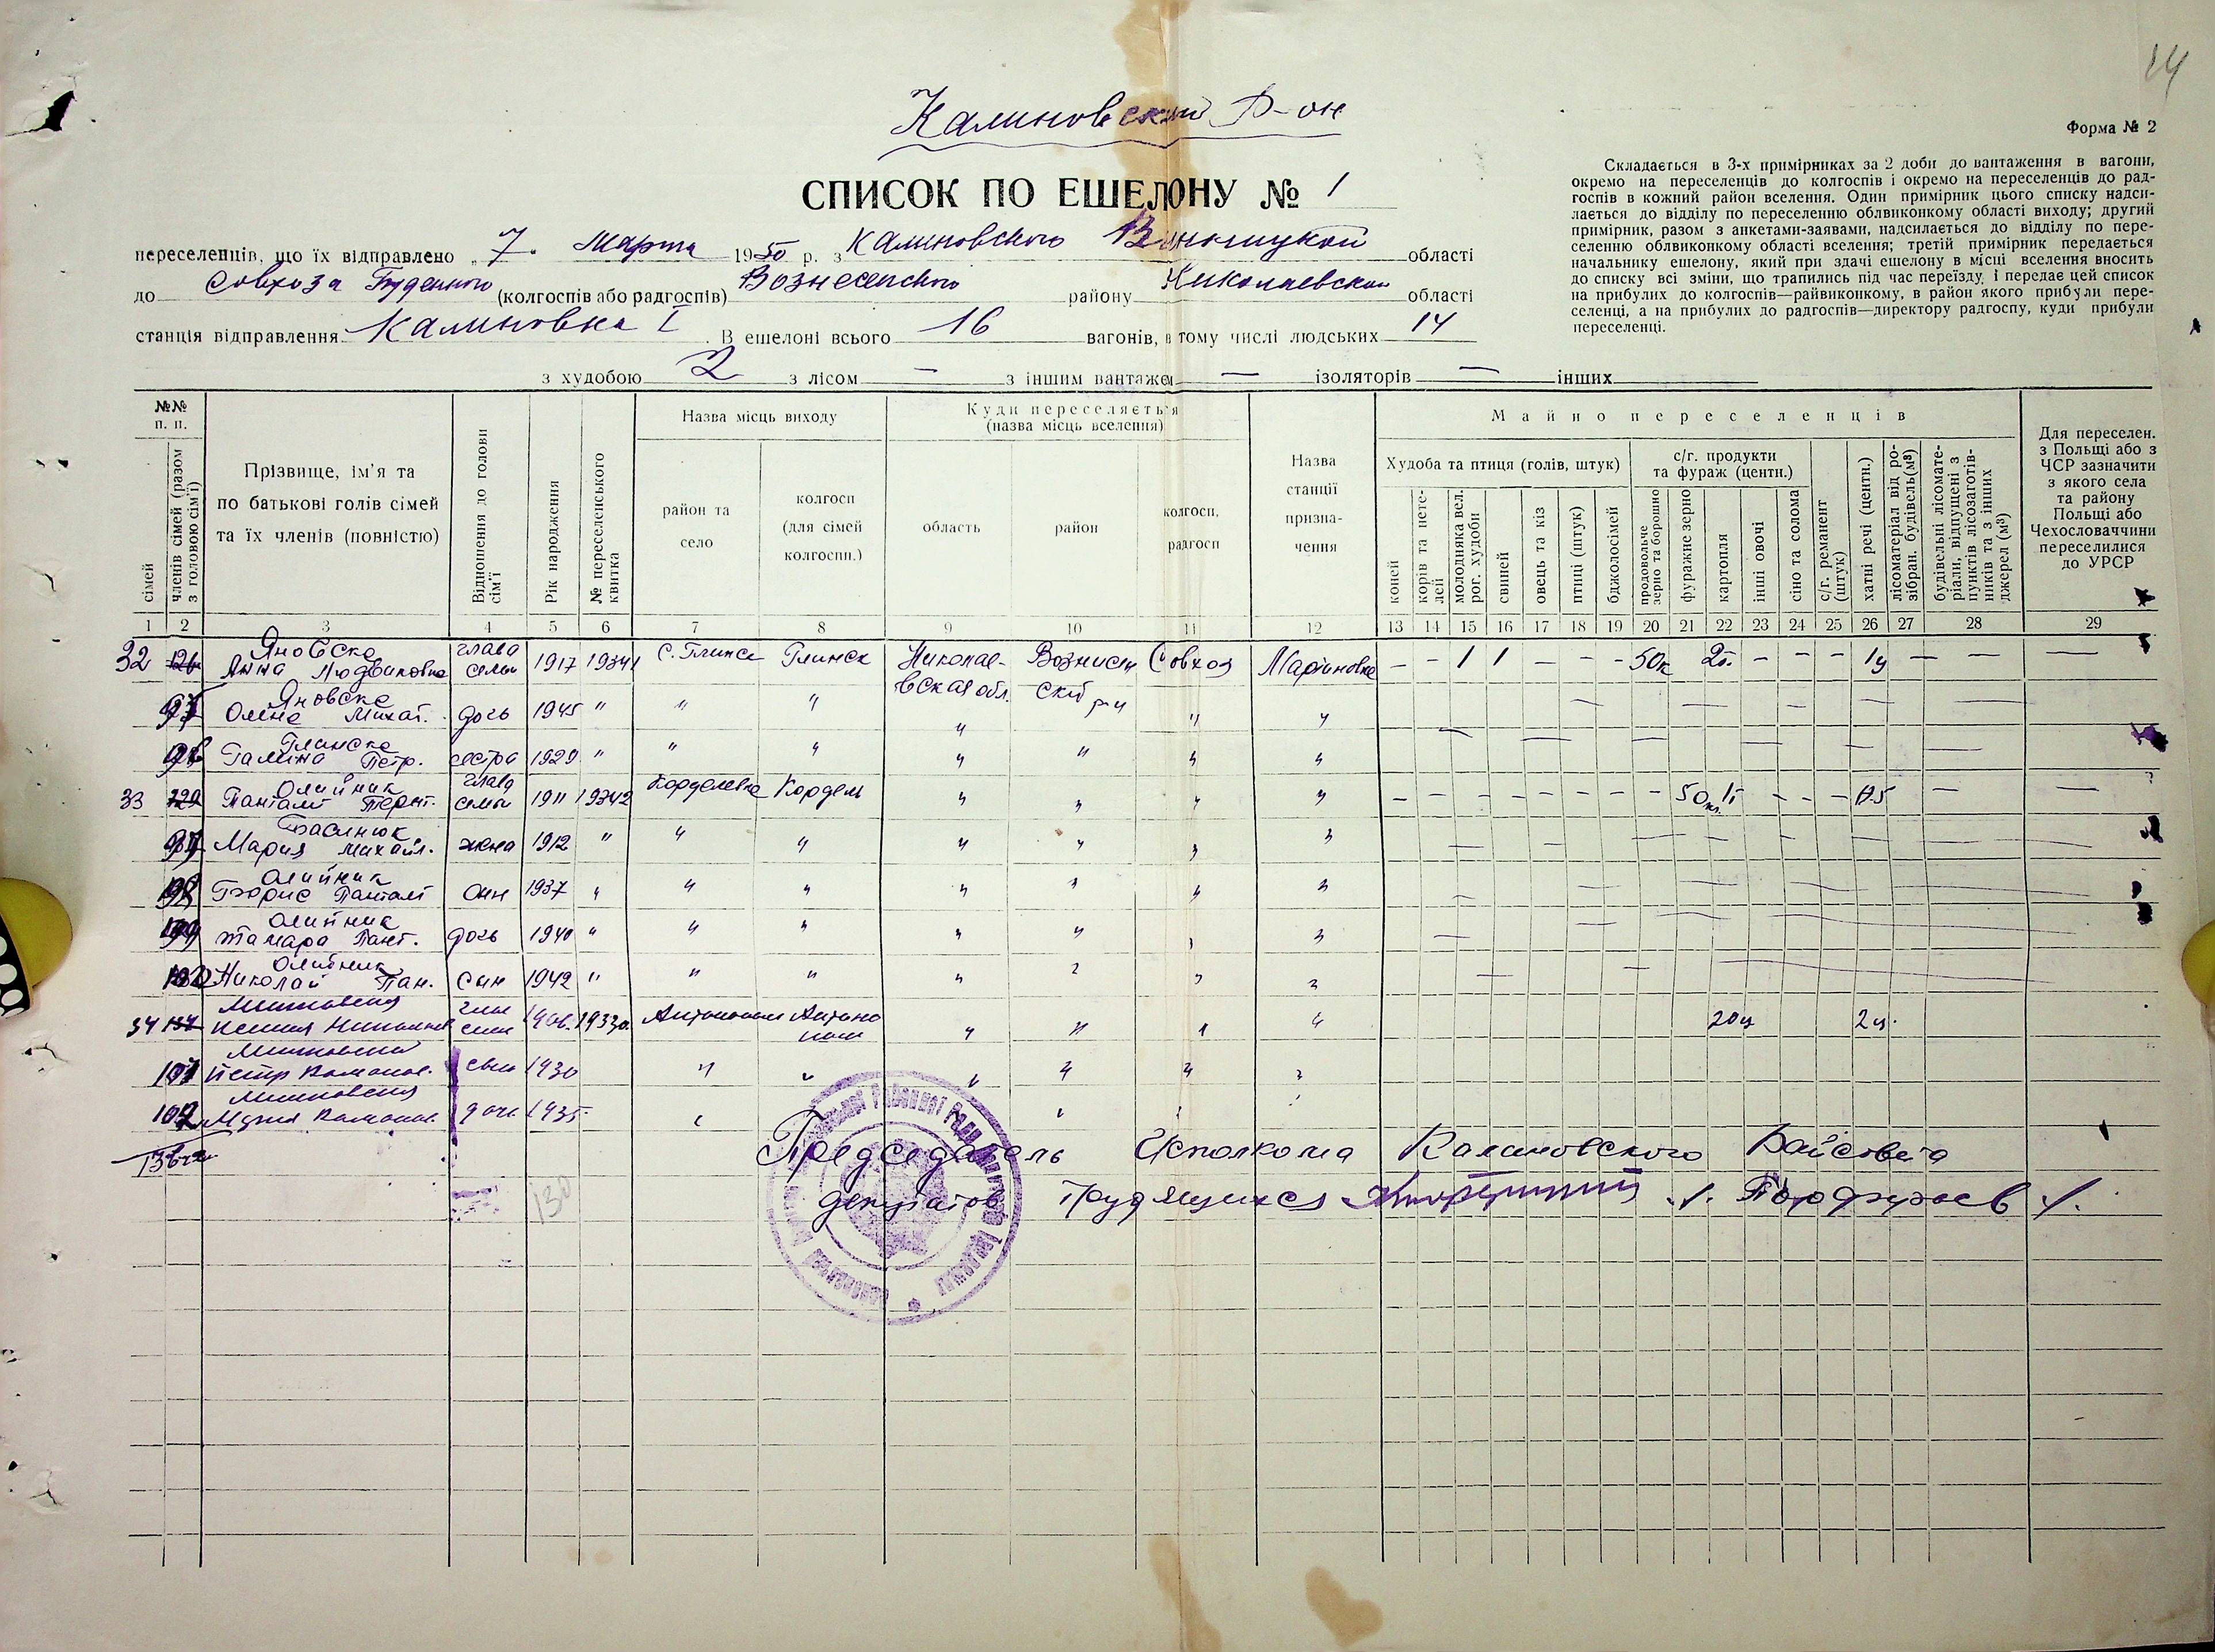 14
Калиновский р-он
Форма № 2
СПИСОК ПО ЕШЕЛОНУ № 1
Складається в 3-х примірниках за 2 доби до вантаження в вагони,
окремо на переселенців до колгоспів і окремо на переселенців до рад-
госпів в кожний район вселення. Один примірник цього списку надси-
лається до відділу по переселенню облвиконкому області виходу; другий
примірник, разом з анкетами-заявами, надсилається до відділу по пере-
селенню облвиконкому області вселення; третій примірник передається
начальнику ешелону, який при здачі ешелону в місці вселення вносить
до списку всі зміни, що трапились під час переїзду, і передає цей список
на прибулих до колгоспів—райвиконкому, в район якого прибули пере-
селенці, а на прибулих до радгоспів—директору радгоспу, куди прибули
переселенці.
переселенців, що їх відправлено „7" Марта 1950 р. з Калиновского Винницкой області
до совхоза Буденного (колгоспів або радгоспів) Вознесенского району Николаевской області
станція відправлення Калиновка I. В ешелоні всього 16 вагонів, в тому числі людських 14
з худобою 2 з лісом — з іншим вантажем — ізоляторів — інших
№№ п. п.
сімей
членів сімей (разом з головою сім'ї)
Прізвище, ім'я та
по батькові голів сімей
та їх членів (повністю)
Відношення до голови сім'ї
Рік народження
№ переселенського квитка
Назва місць виходу
район та село
колгосп (для сімей колгоспн.)
Куди переселяється
(назва місць вселення)
область
район
колгосп, радгосп
Назва станції призна-чення
Майно переселенців
Худоба та птиця (голів, штук)
коней
корів та нете-лей
молодняка вел. рог. худоби
свиней
овець та кіз
птиці (штук)
бджолосімей
с/г. продукти та фураж (центн.)
продовольче зерно та борошно
фуражне зерно
картопля
інші овочі
сіно та солома
с/г. реманент (штук)
хатні речі (центн.)
лісоматеріал від ро-зібран. будівель(м³)
будівельні лісомате-ріали, відпущені з пунктів лісозаготів-ників та з інших джерел (м³)
Для переселен.
з Польщі або з
ЧСР зазначити
з якого села
та району
Польщі або
Чехословаччини
переселилися
до УРСР
1 2 3 4 5 6 7 8 9 10 11 12 13 14 15 16 17 18 19 20 21 22 23 24 25 26 27 28 29
32 126 Яновска Анна Людвиковна глава семьи 1917 19341 с. Глинск Глинск Николае-вская обл. Совхоз Мартиновка — — 1 1 — — — 50к — — — 1ц — — —
Яновска Олена Михай. дочь 1945 " " " " " "
Глинска Галина Петр. сестра 1929 " " " " " " "
33 129 Олийник глава семьи 1911 19342 Корделевка Кордел " " " " — — — — — — — — — — — — —
Мария Михайл. жена 1912 " " " " " " "
98 Олийник Борис Пантал сын 1937 " " " " " " "
Олийник Тамара Пант. дочь 1940 " " " " " " "
Олийник Николай Пан. сын 1942 " " " " " " "
34 20ц 2ц.
101 Петр сын 1930 " " " " " "
102 доч 1935 " " "
130
Председатель Исполкома Калиновского Райсовета
депутатов Трудящихся